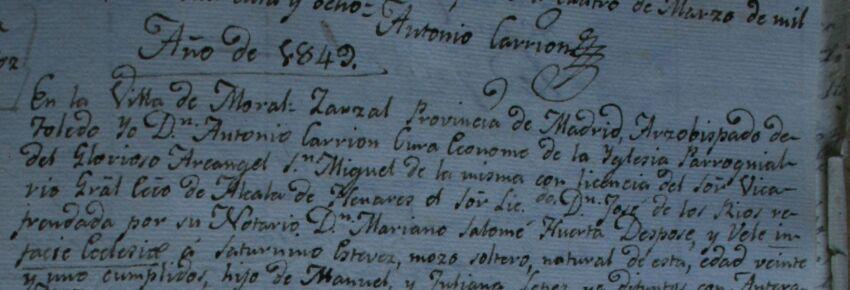 quatro de Marzo de mil
y ocho= Antonio Carrion
Año de 1849.
En la Villa de Moral-Zarzal Provincia de Madrid, Arzobispado de
Toledo Yo D.n Antonio Carrion Cura Economo de la Yglesia Parroquial
del Glorioso Arcangel S.n Miguel de la misma con licencia del Sor Vica-
rio Gräl Ecco de Alcala de Henares el Sor Lic.do D.n José de los Rios re-
frendada por su Notario D.n Mariano Salomé Huerta Despose, y Vele in
facie Eclesiæ á Saturnino Estevez, mozo soltero, natural de esta, edad veinte
y uno cumplidos, hijo de Manuel, y Juliana Lopez ya difuntos con Antera-